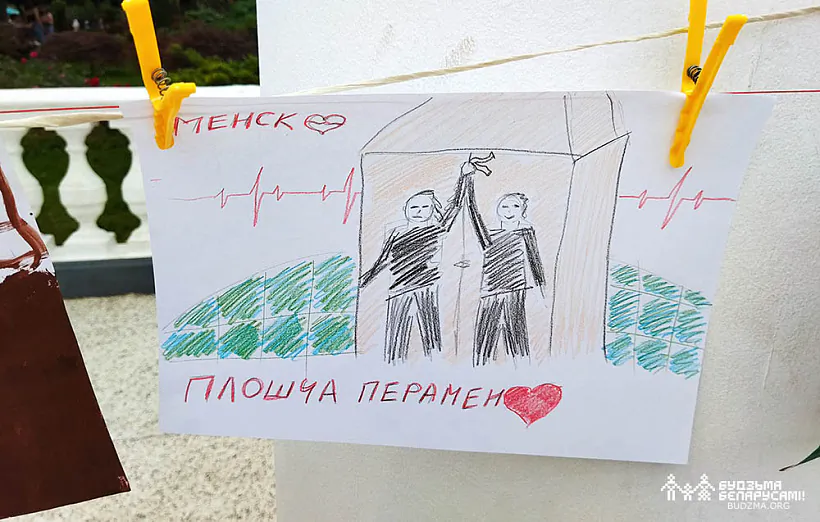 МЕНСК
ПЛОШЧА ПЕРАМЕН
БУДЗЬМА
БЕЛАРУСАМІ!
BUDZMA.ORG